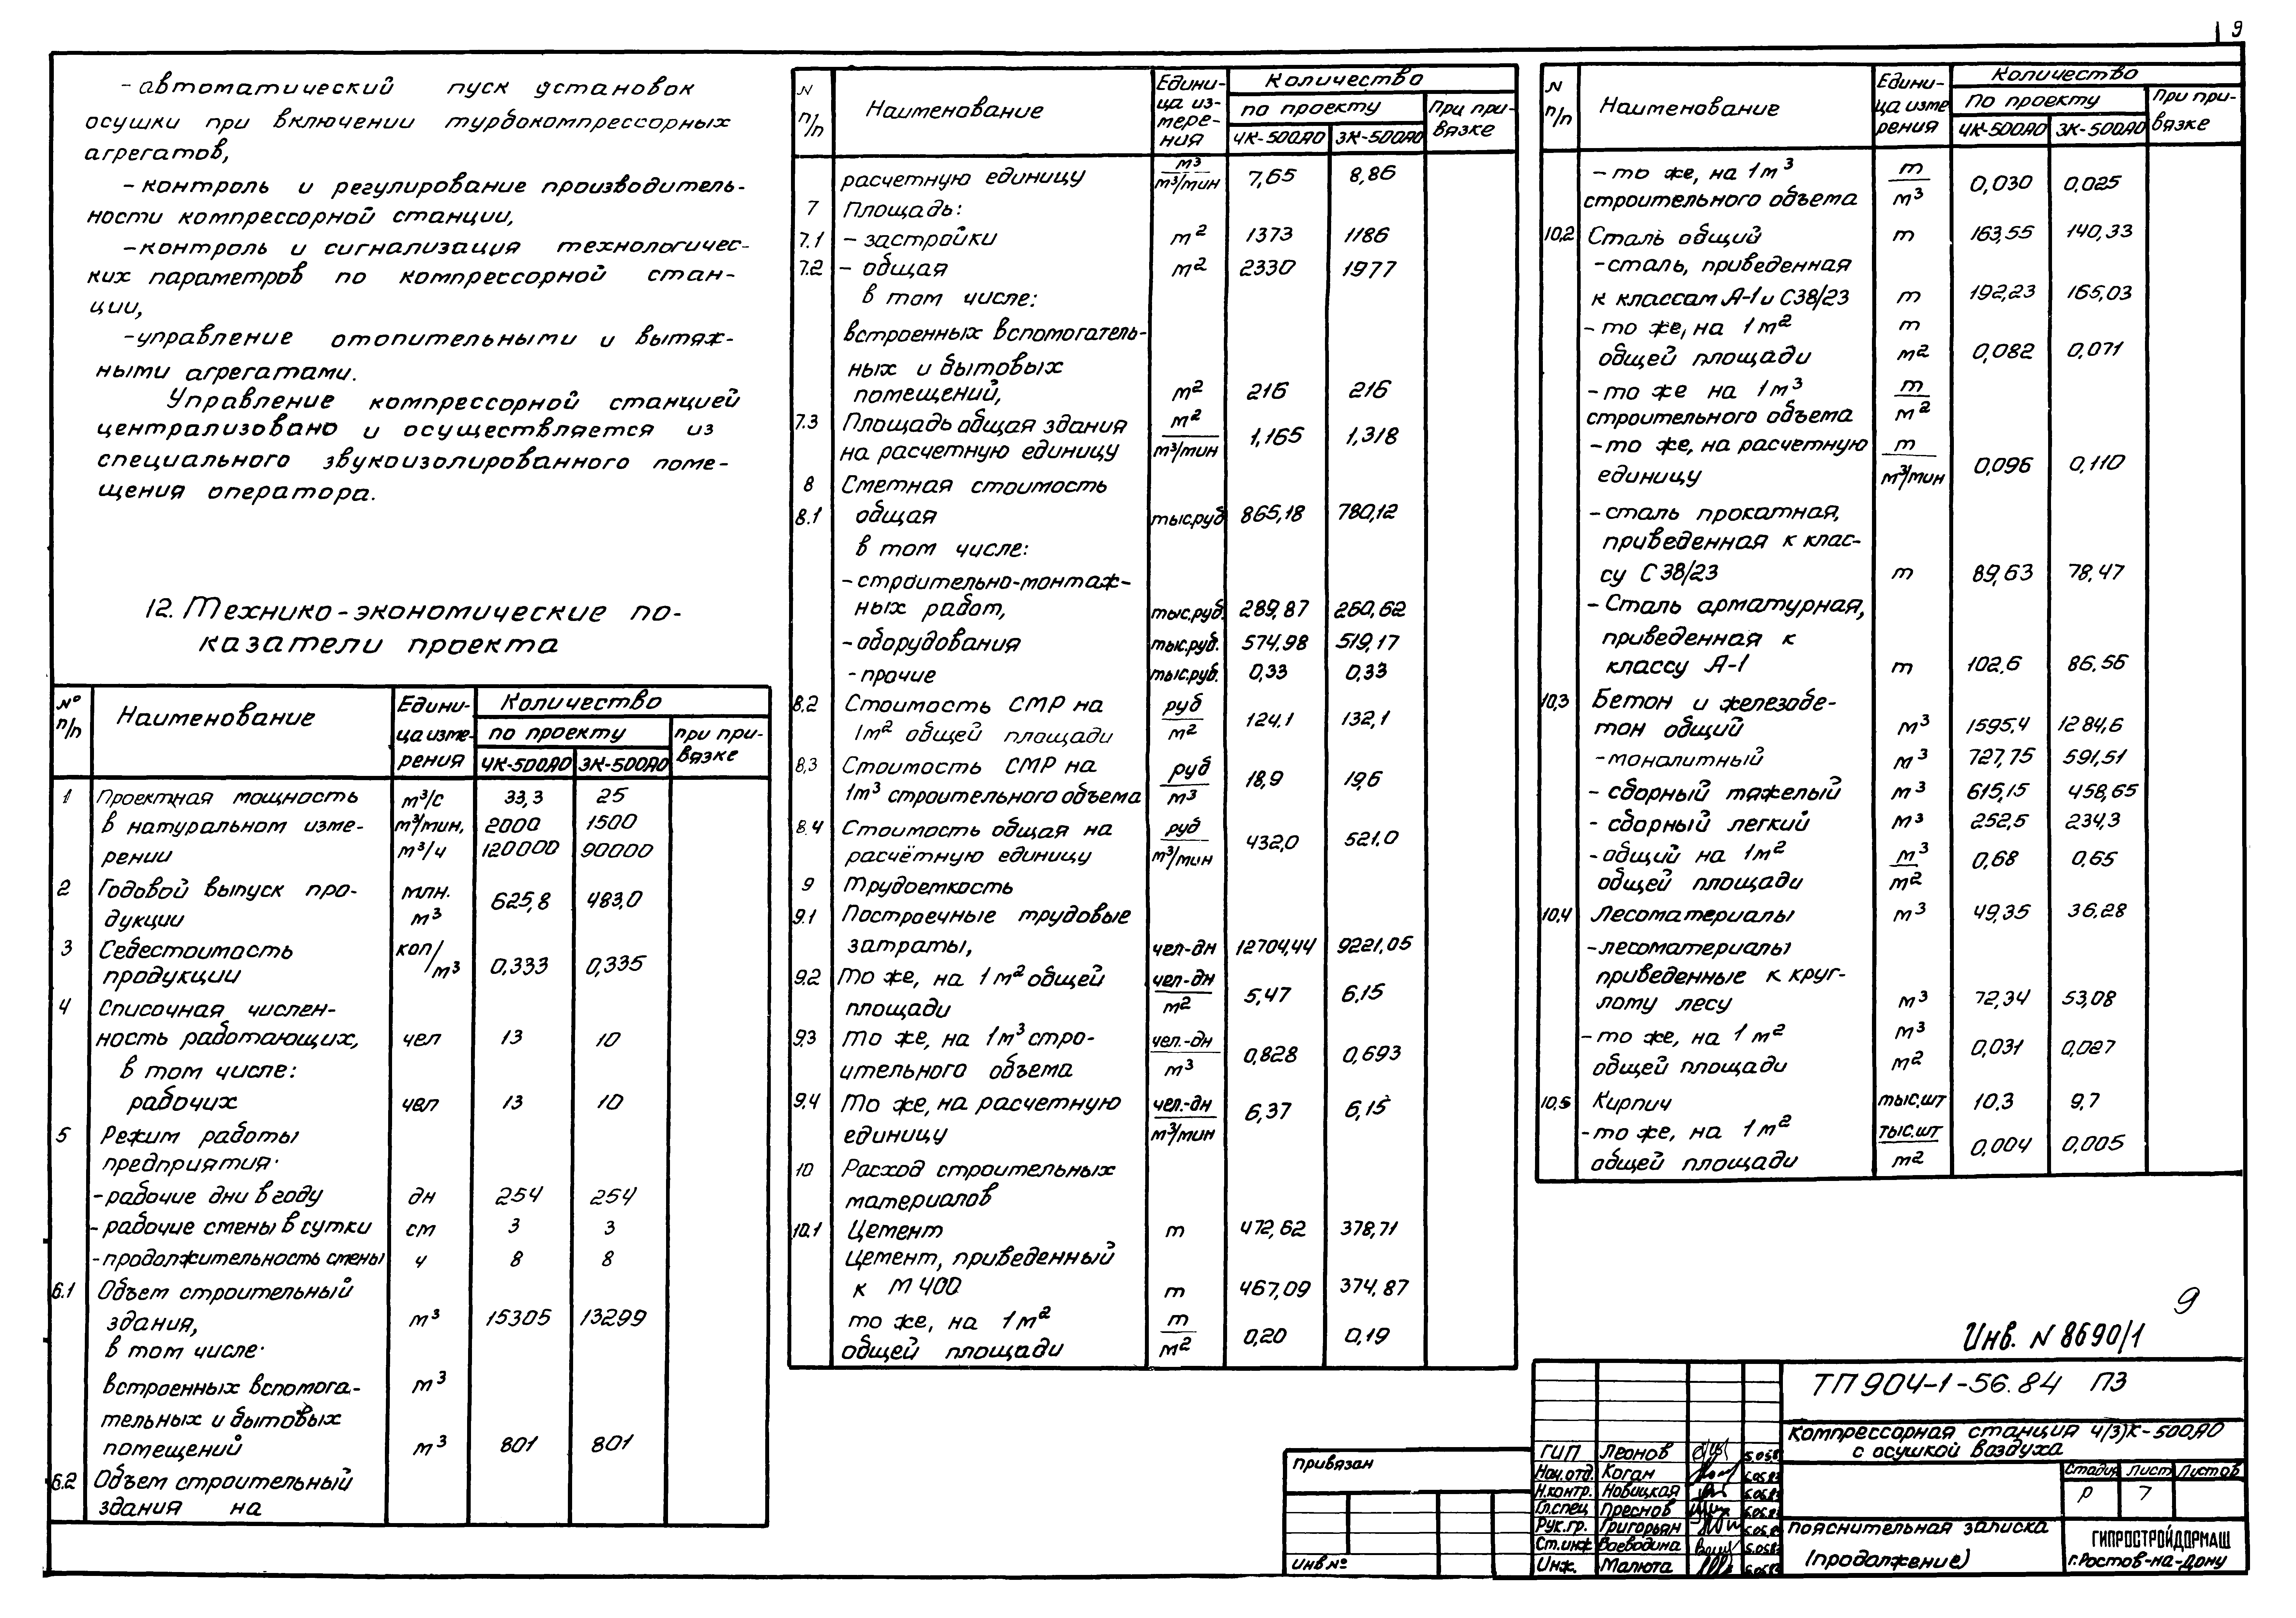 9
- автоматический пуск установок
осушки при включении турбокомпрессорных
агрегатов,
- контроль и регулирование производитель-
ности компрессорной станции,
- контроль и сигнализация технологичес-
ких параметров по компрессорной стан-
ции,
- управление отопительными и вытяж-
ными агрегатами.
Управление компрессорной станцией
централизовано и осуществляется из
специального звукоизолированного поме-
щения оператора.
12. Технико-экономические по-
казатели проекта
№ п/п Наименование Едини- Количество
ца изме- по проекту при при-
рения 4К-500АО 3К-500АО вязке
1 Проектная мощность м³/с 33,3 25
в натуральном изме- м³/мин, 2000 1500
рении м³/ч 120000 90000
2 Годовой выпуск про- млн.
дукции м³ 625,8 483,0
3 Себестоимость коп/
продукции м³ 0,333 0,335
4 Списочная числен-
ность работающих, чел 13 10
в том числе:
рабочих чел 13 10
5 Режим работы
предприятия:
- рабочие дни в году дн 254 254
- рабочие смены в сутки см 3 3
- продолжительность смены ч 8 8
6.1 Объем строительный
здания, м³ 15305 13299
в том числе:
встроенных вспомога- м³
тельных и бытовых
помещений м³ 801 801
6.2 Объем строительный
здания на
N п/п Наименование Едини- Количество
ца из- по проекту При при-
мере- 4К-500АО 3К-500АО вязке
ния
расчетную единицу м³ / м³/мин 7,65 8,86
7 Площадь:
7.1 - застройки м² 1373 1186
7.2 - общая м² 2330 1977
в том числе:
встроенных вспомогатель-
ных и бытовых
помещений, м² 216 216
7.3 Площадь общая здания м²
на расчетную единицу м³/мин 1,165 1,318
8 Сметная стоимость
8.1 общая тыс.руб 865,18 780,12
в том числе:
- строительно-монтаж-
ных работ, тыс.руб. 289,87 260,62
- оборудования тыс.руб. 574,98 519,17
- прочие тыс.руб. 0,33 0,33
8.2 Стоимость СМР на руб
1м² общей площади м² 124,1 132,1
8.3 Стоимость СМР на руб
1м³ строительного объема м³ 18,9 19,6
8.4 Стоимость общая на руб
расчётную единицу м³/мин 432,0 521,0
9 Трудоемкость
9.1 Построечные трудовые
затраты, чел-дн 12704,44 9221,05
9.2 То же, на 1м² общей чел-дн
площади м² 5,47 6,15
9.3 То же, на 1м³ стро- чел.-дн
ительного объема м³ 0,828 0,693
9.4 То же, на расчетную чел.-дн
единицу м³/мин 6,37 6,15
10 Расход строительных
материалов
10.1 Цемент т 472,62 378,71
Цемент, приведенный
к М 400 т 467,09 374,87
то же, на 1м² т
общей площади м² 0,20 0,19
N п/п Наименование Едини- Количество
ца изме По проекту При при-
рения 4К-500АО 3К-500АО вязке
- то же, на 1м³ т
строительного объема м³ 0,030 0,025
10.2 Сталь общий т 163,55 140,33
- сталь, приведенная
к классам А-1 и С38/23 т 192,23 165,03
- то же, на 1м² т
общей площади м² 0,082 0,071
- то же на 1м³ т
строительного объема м²
- то же, на расчетную т
единицу м³/мин 0,096 0,110
- сталь прокатная,
приведенная к клас-
су С 38/23 т 89,63 78,47
- Сталь арматурная,
приведенная к
классу А-1 т 102,6 86,56
10.3 Бетон и железобе-
тон общий м³ 1595,4 1284,6
- монолитный м³ 727,75 591,51
- сборный тяжелый м³ 615,15 458,65
- сборный легкий м³ 252,5 234,3
- общий на 1м² м³
общей площади м² 0,68 0,65
10.4 Лесоматериалы м³ 49,35 36,28
- лесоматериалы
приведенные к круг-
лому лесу м³ 72,34 53,08
- то же, на 1м² м³
общей площади м² 0,031 0,027
10.5 Кирпич тыс.шт 10.3 9,7
- то же, на 1м² тыс.шт
общей площади м² 0,004 0,005
9
Инв. N 8690/1
Привязан
Инв №
ГИП Леонов
Нач.отд. Коган
Н.контр. Новицкая
Гл.спец Преснов
Рук.гр. Григорьян
Ст.инж Ваеводина
Инж. Малюта
ТП 904-1-56.84 ПЗ
Компрессорная станция 4(3)К-500АО
с осушкой воздуха
Стадия Лист Листов
Р 7
Пояснительная записка
(продолжение)
ГИПРОСТРОЙДОРМАШ
г.Ростов-на-Дону